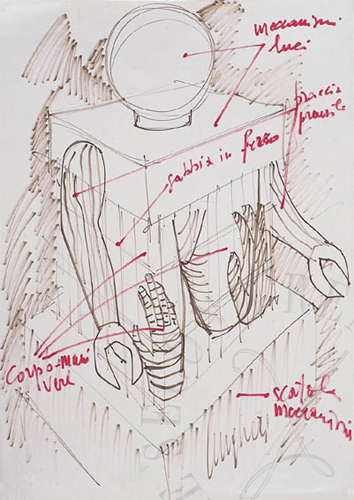 meccanismi
luci
braccia
gabbia in ferro
Corpo-mani
vere
scatola
meccanismi